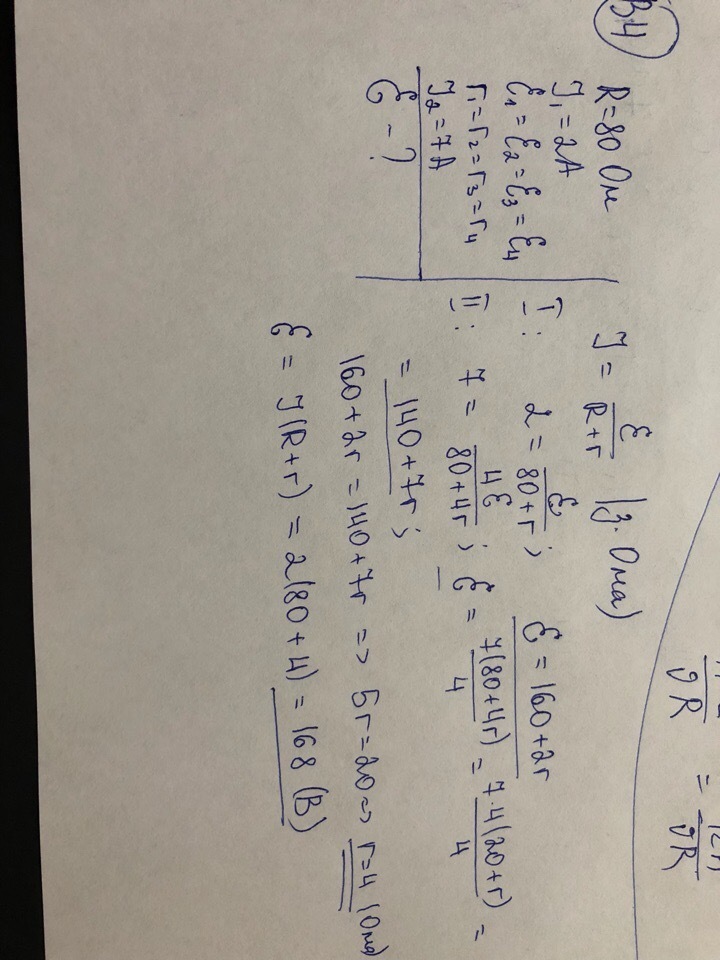 В4
R=80 Ом
J₁=2A
ℰ₁=ℰ₂=ℰ₃=ℰ₄
r₁=r₂=r₃=r₄
J₂=7A
ℰ - ?
J = ℰ/(R+r) (з. Ома)
I: 2 = ℰ/(80+r); ℰ = 160+2r
II: 7 = 4ℰ/(80+4r); ℰ = 7(80+4r)/4 = 7·4(20+r)/4 =
= 140+7r;
160+2r = 140+7r => 5r=20 => r=4 (Ома)
ℰ = J(R+r) = 2(80+4) = 168 (В)
gR = gR